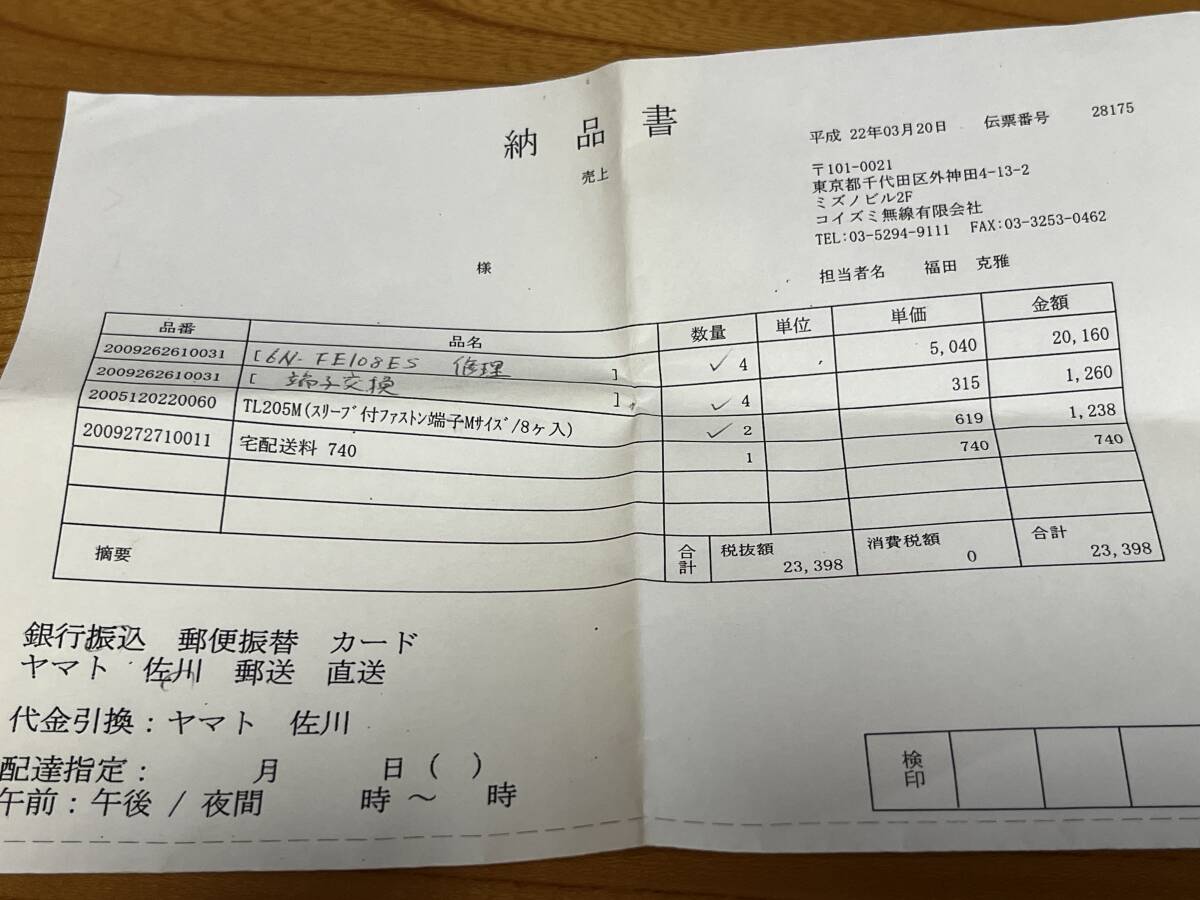 納品書
売上
平成 22年03月20日 伝票番号 28175
〒101-0021
東京都千代田区外神田4-13-2
ミズノビル2F
コイズミ無線有限会社
TEL:03-5294-9111 FAX:03-3253-0462
様
担当者名 福田 克雅
品番 品名 数量 単位 単価 金額
2009262610031 [6N-FE108ES 修理 ] ✓ 4 5,040 20,160
2009262610031 [ 端子交換 ] ✓ 4 315 1,260
2005120220060 TL205M(ｽﾘｰﾌﾞ付ﾌｧｽﾄﾝ端子Mｻｲｽﾞ/8ヶ入) ✓ 2 619 1,238
2009272710011 宅配送料 740 1 740 740
摘要 合計 税抜額 23,398 消費税額 0 合計 23,398
銀行振込 郵便振替 カード
ヤマト 佐川 郵送 直送
代金引換:ヤマト 佐川
配達指定: 月 日( )
午前:午後/夜間 時～ 時
検印